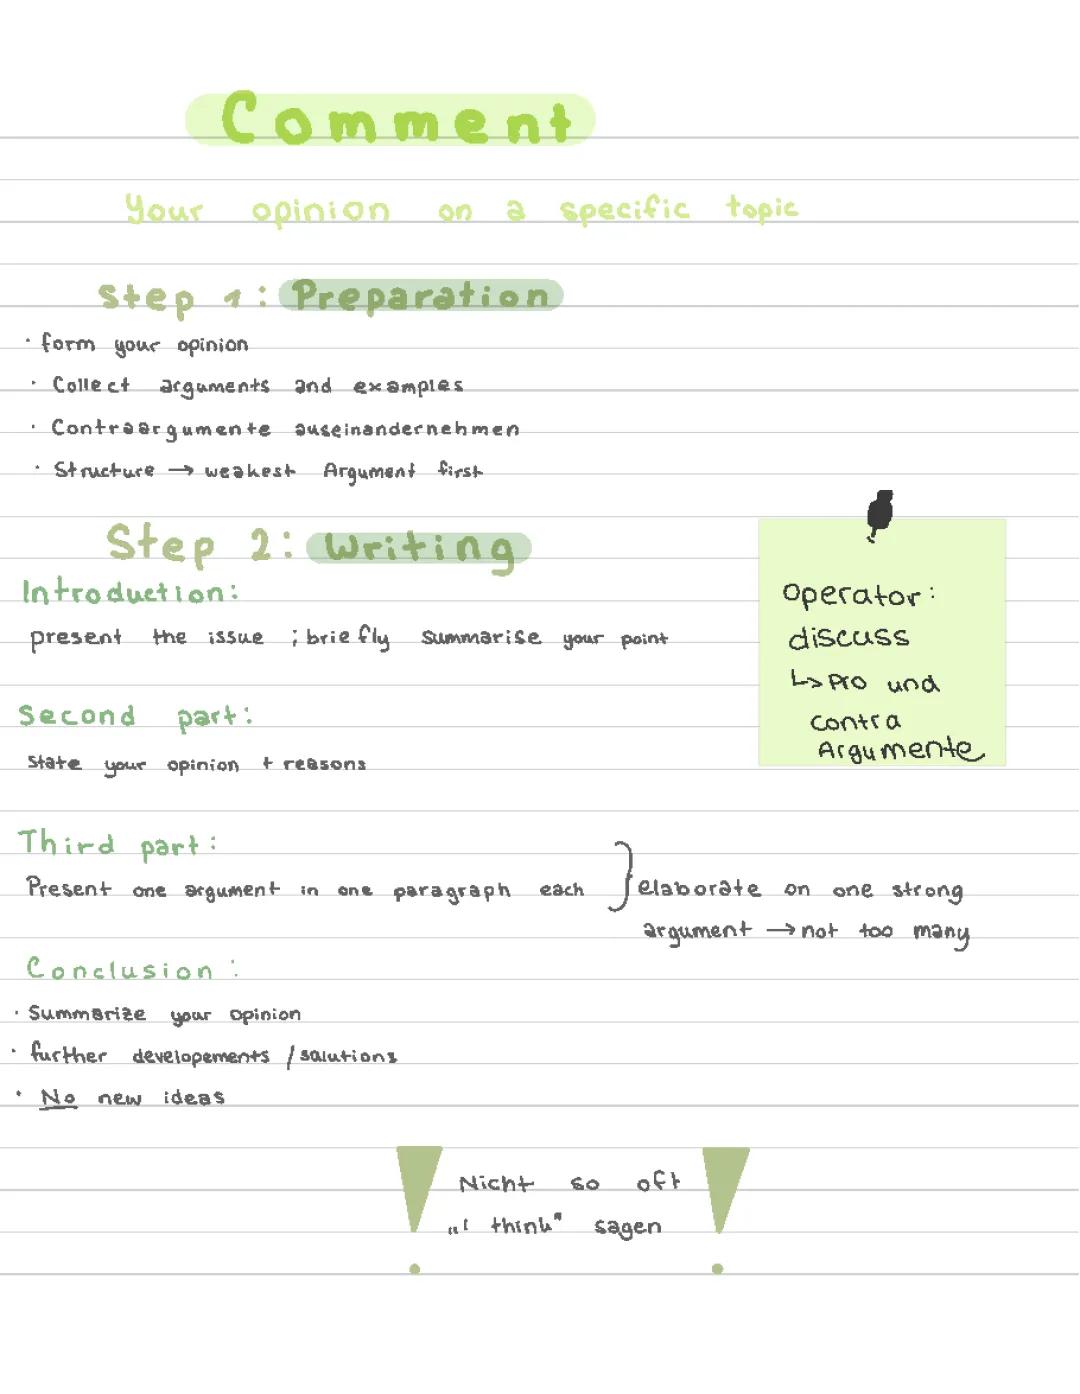 Comment
Your opinion on a specific topic
Step 1: Preparation
· form your opinion
· Collect arguments and examples
· Contraargumente auseinandernehmen
· Structure → weakest Argument first
Step 2: Writing
Introduction:
present the issue ; briefly summarise your point
operator:
discuss
↳ Pro und
contra
Argumente
Second part:
State your opinion + reasons
Third part:
Present one argument in one paragraph each } elaborate on one strong
argument → not too many
Conclusion:
· Summarize your opinion
· further developements / salutions
· No new ideas
Nicht so oft
„I think" sagen